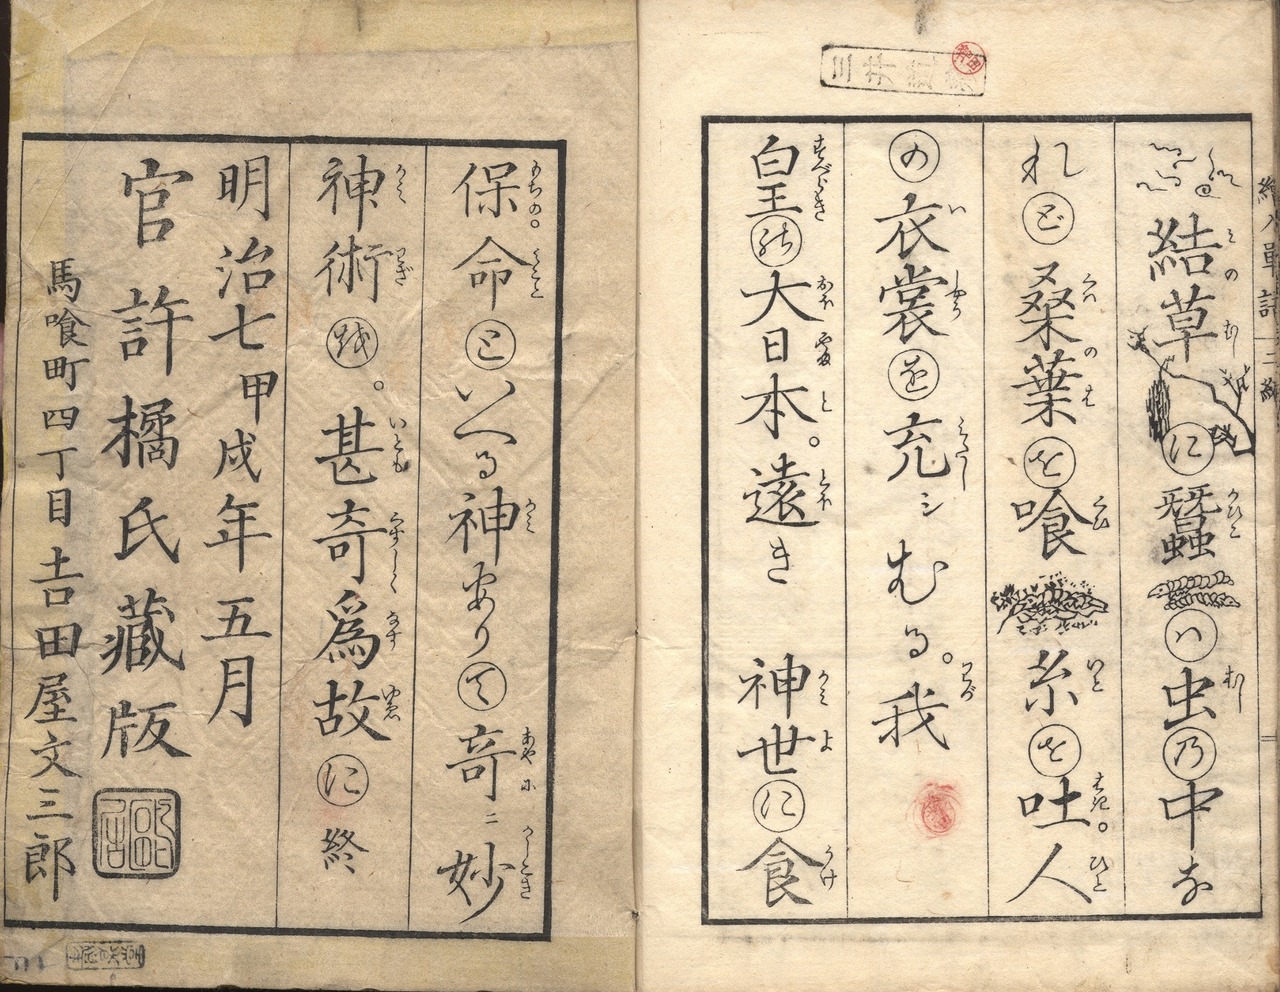 結草に蠶ハ虫乃中な
れど桑葉を喰糸を吐。人
の衣裳を充シむる。我
皇の大日本。遠き神世に食
保命といへる神ありて奇ニ妙
神術を。甚奇爲故に終
明治七甲戌年五月
官許橘氏藏版
馬喰町四丁目吉田屋文三郎